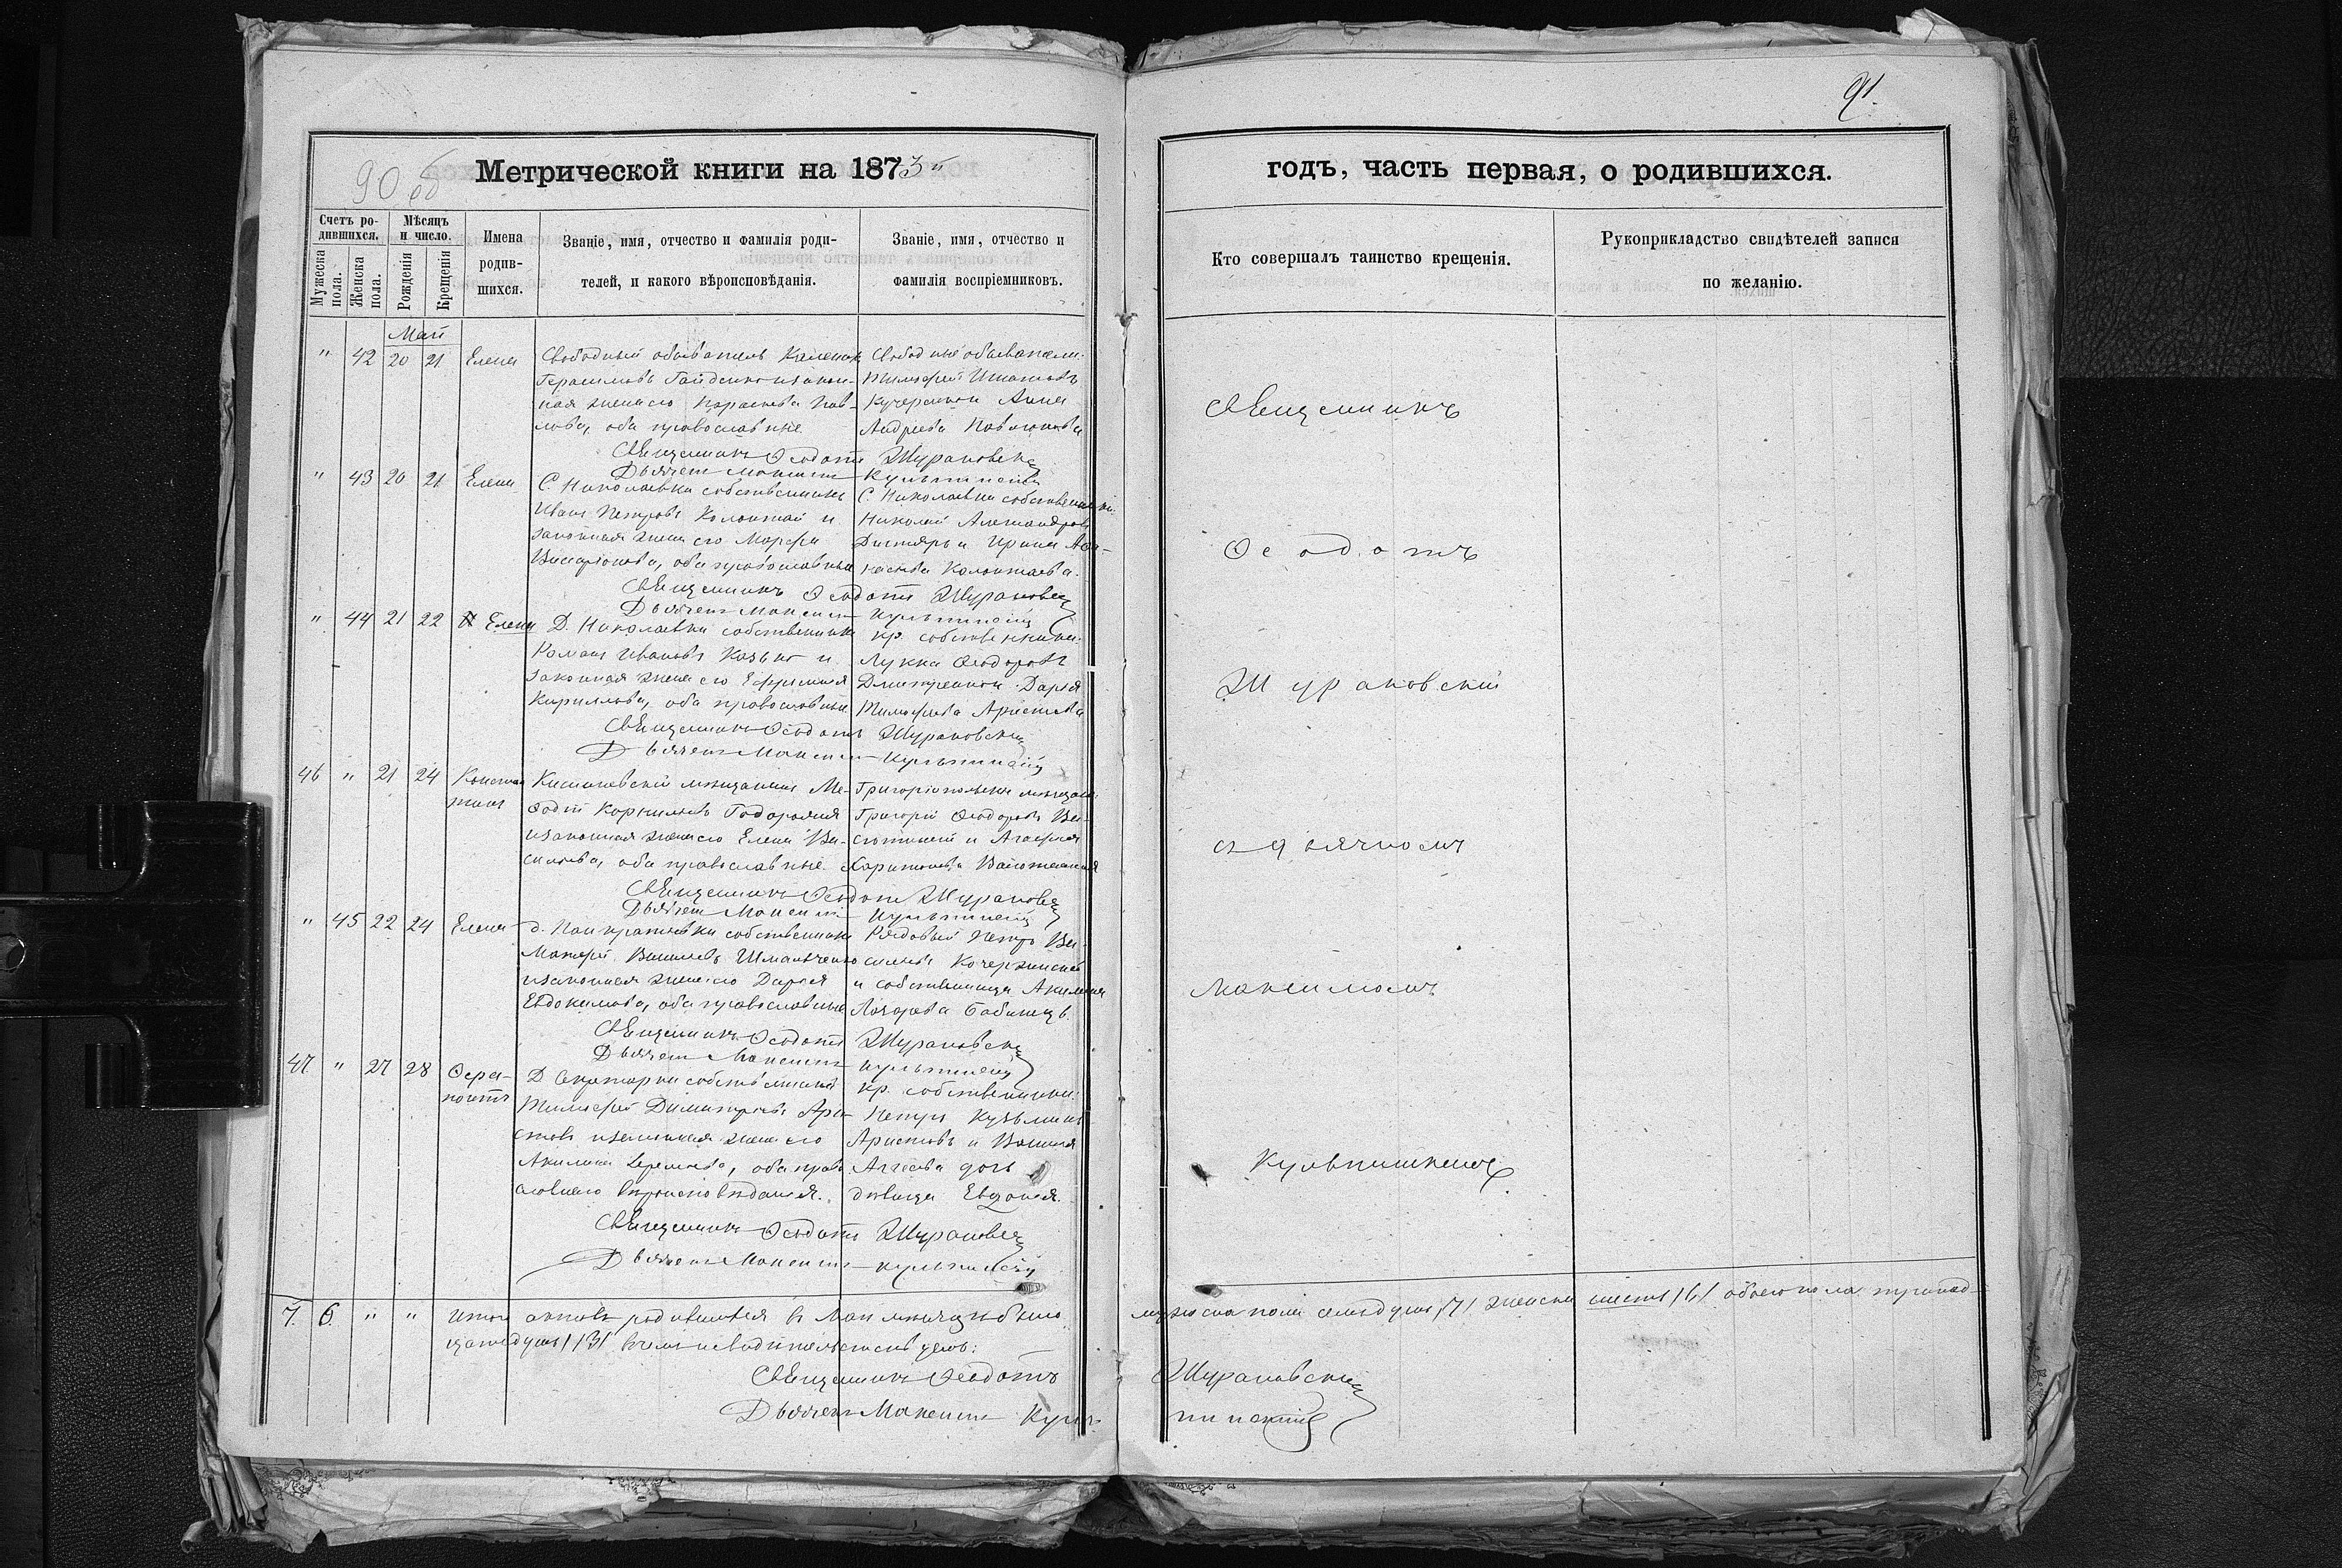 91.
90 об
Метрической книги на 1873 й
годъ, часть первая, о родившихся.
Счетъ родившихся.
Мужеска пола.
Женска пола.
Мѣсяцъ и число.
Рожденія
Крещенія
Имена родившихся.
Званіе, имя, отчество и фамилія роди-
телей, и какого вѣроисповѣданія.
Званіе, имя, отчество и
фамилія воспріемниковъ.
Кто совершалъ таинство крещенія.
Рукоприкладство свидѣтелей записи
по желанію.
Май
" 42 20 21 Елена
Свободный обыватель
Герасимовъ Гайденко и закон-
ная жена его Параскева Пав-
лова, оба православные
Свободные обыватели:
Тимофей Игнатовъ
Кучеренко Анна
Андреева Павлюкова
Священникъ Ѳеодотъ Жураковскій
Дьячекъ Максимъ
" 43 20 21 Елена
С. Николаевки собственникъ
Иванъ Петровъ Колонтай и
законная жена его Марфа
Виссаріонова, оба православные
С. Николаевки собственники:
Николай Александровъ
Дихтярь и Ирина Афа-
насіева Колонтаева.
Священникъ Ѳеодотъ Жураковскій
Дьячекъ Максимъ
" 44 21 22 Елена
Д. Николаевки собственникъ
Романъ Ивановъ Козько и
законная жена его Ефимія
Кириллова, оба православные
кр. собственники:
Лукка Ѳеодоровъ
Дмитренко Дарія
Тимофеева Аристова
Священникъ Ѳеодотъ Жураковскій
Дьячекъ Максимъ
46 " 21 24 Констан
тинъ
Кишиневскій мѣщанинъ Ме-
ѳодій Корниловъ Тодорожня
и законная жена его Елена Ва-
сильева, оба православные
Григоріопольскіе мѣщане:
Григорій Ѳеодоровъ Вы-
сотинскій и Агафія
Харитонова
Священникъ Ѳеодотъ Жураковскій
Дьячекъ Максимъ
" 45 22 24 Елена
д. Панкратьевки собственникъ
Матфей Шмальченко
и законная жена его Дарія
Евдокимова, оба православные
Рядовый Петръ Ва-
сильевъ Кочержинскій
и собственница Акилина
Лазарева Бабинецъ.
Священникъ Ѳеодотъ Жураковскій
Дьячекъ Максимъ
47 " 27 28 Ѳера-
понтъ
Д. собственникъ
Тимофей Димитріевъ Ари-
стовъ и законная жена его
Акилина Еремѣева, оба право-
славнаго вѣроисповѣданія.
кр. собственники:
Петръ Кузьминъ
Аристовъ и Василія
дочь
дѣвица Евдокія.
Священникъ Ѳеодотъ Жураковскій
Дьячекъ Максимъ
Священникъ
Ѳеодотъ
Жураковскій
съ дьячкомъ
Максимомъ
7. 6. " "
Итого актовъ родившихся въ Маѣ мѣсяцѣ было
мужеска пола семь душъ /7/ женска шесть /6/ обоего пола тринад-
цать душъ /13/ въ чемъ и свидѣтельствуемъ:
Священникъ Ѳеодотъ Жураковскій
Дьячекъ Максимъ